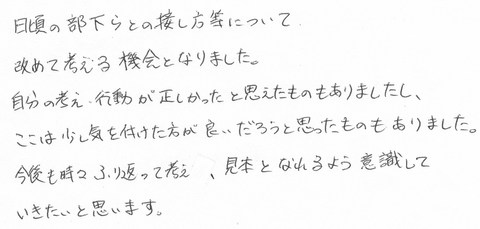 日頃の部下らとの接し方等について
改めて考える機会となりました。
自分の考え・行動が正しかったと思えたものもありましたし、
ここは少し気を付けた方が良いだろうと思ったものもありました。
今後も時々ふり返って考え、見本となれるよう意識して
いきたいと思います。